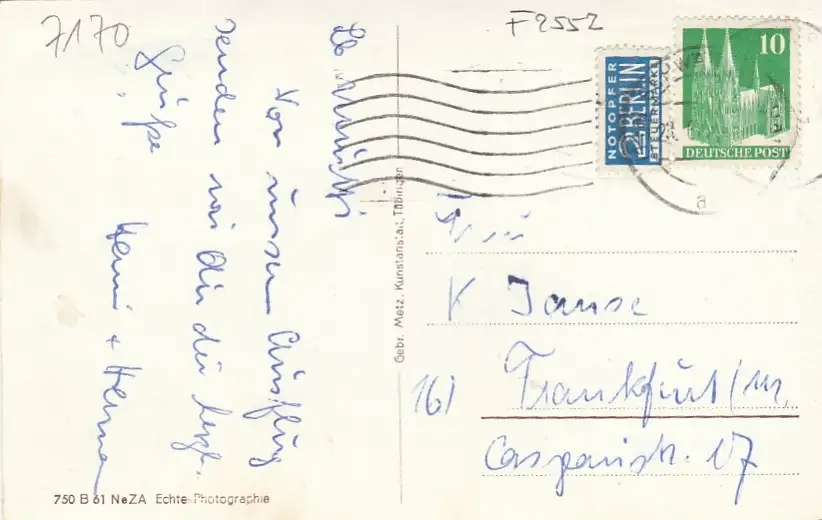 7170
F2552
Von unsern Ausflug
senden wir dir die herzl.
Grüße
NOTOPFER
2 BERLIN
STEUERMARKE
10
DEUTSCHE POST
a
Gebr. Metz, Kunstanstalt, Tübingen
K Janse
16)
Frankfurt/M.
17
750 B 61 NeZA Echte Photographie